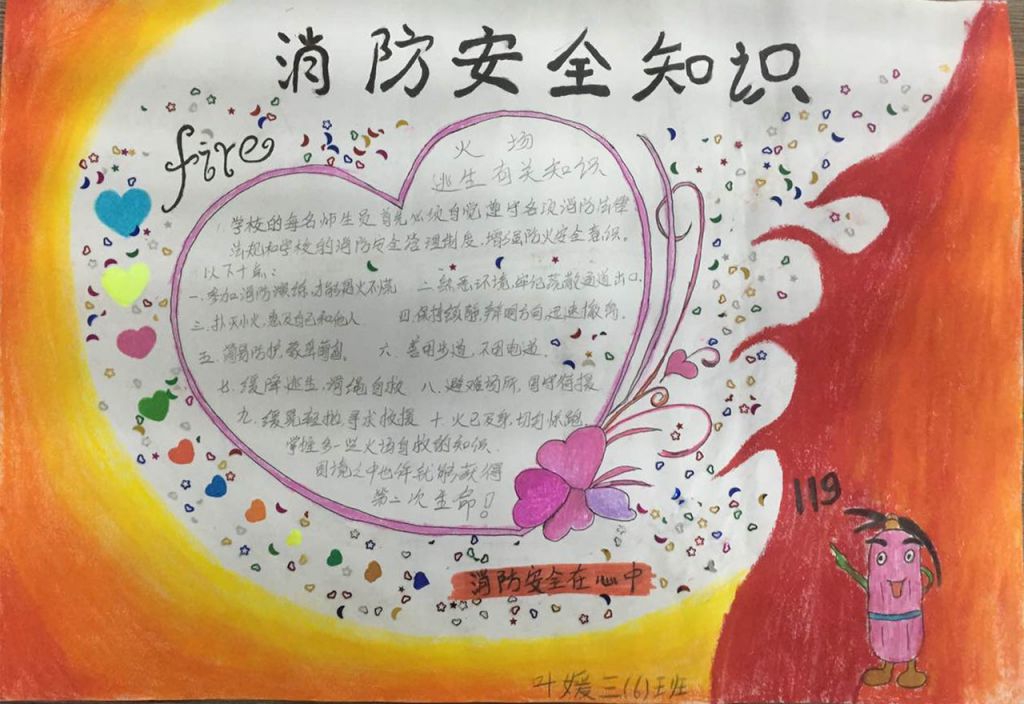 消防安全知识
fire
火场
逃生有关知识
学校的每名师生员首先必须自觉遵守各项消防法律、
法规和学校的消防安全管理制度,增强防火安全意识。
以下十点:
一.参加消防演练,才能遇火不慌 二.熟悉环境,牢记疏散通道出口.
三.扑灭小火,惠及自己和他人 四.保持镇静,辩明方向,迅速撤离.
五.简易防护,蒙鼻匍匐. 六.善用步道,不用电道.
七.缓降逃生,滑绳自救 八.避难场所,固守待援
九.缓晃轻抛,寻求救援 十.火已及身,切勿惊跑.
掌握多一些火场自救的知识.
困境之中也许就能够获得
第二次生命!
119
消防安全在心中
叶媛三(6)班